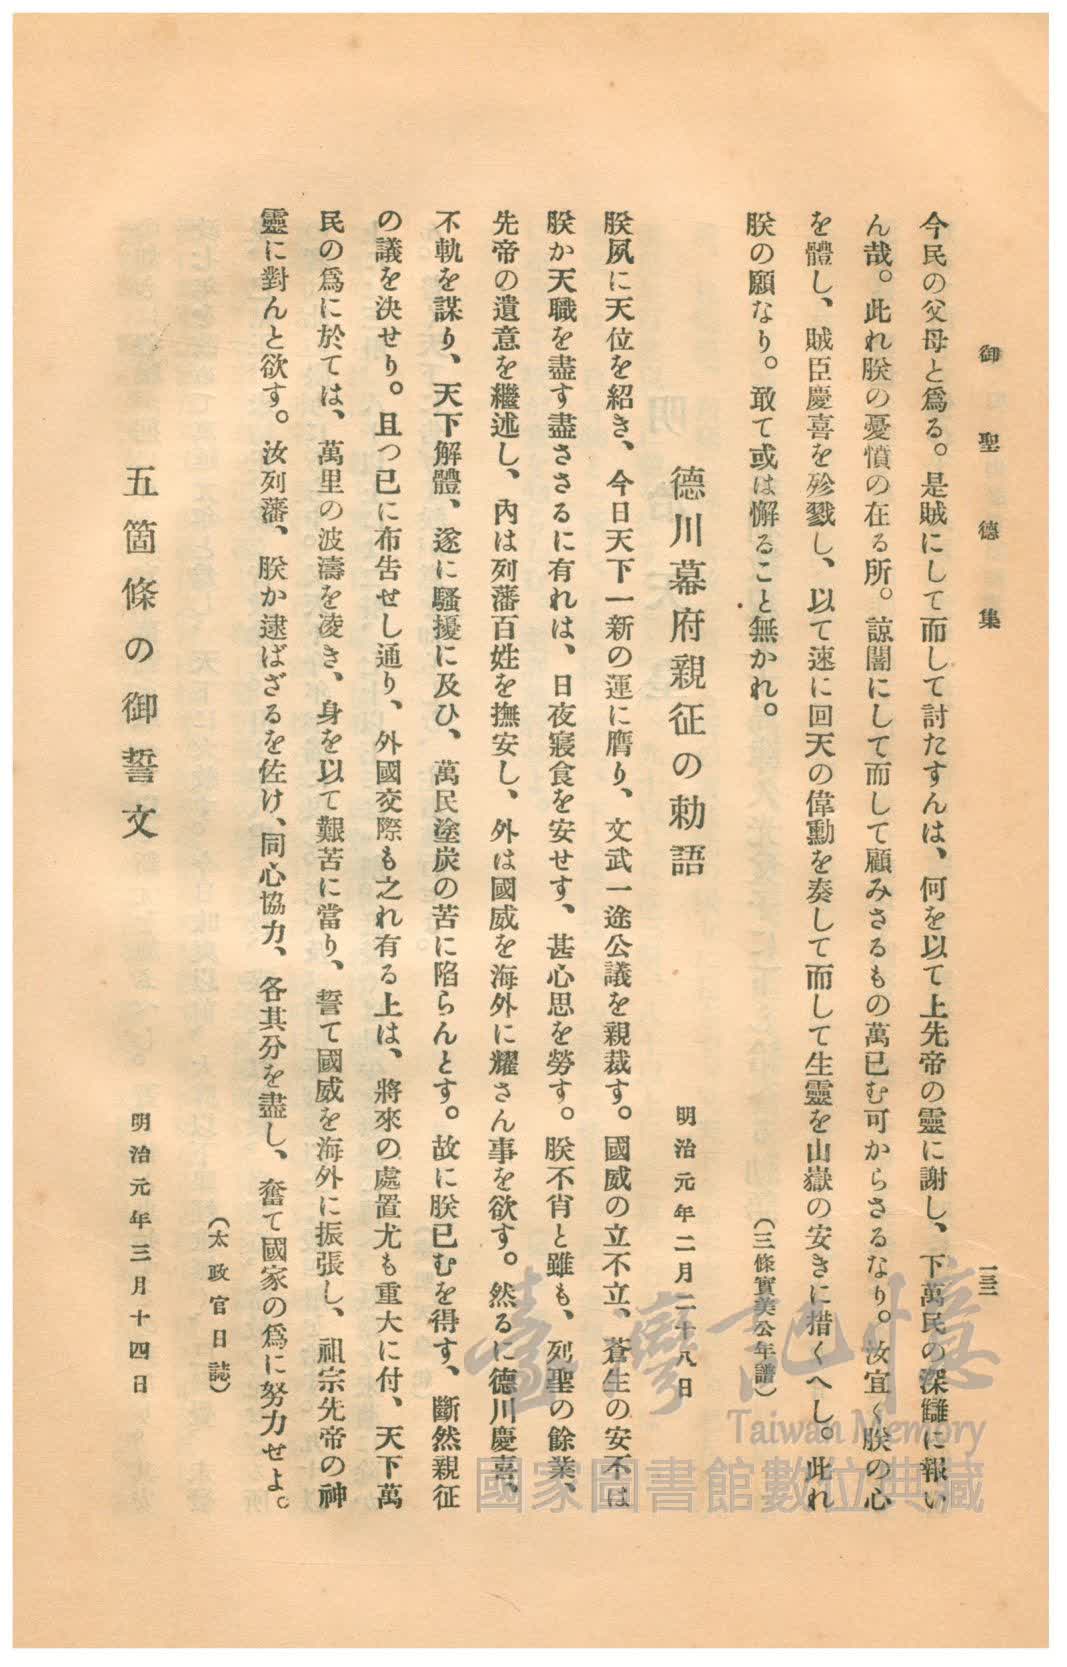 御聖德集
一三二
今民の父母と爲る。是賊にして而して討たすんは、何を以て上先帝の靈に謝し、下萬民の深讎に報い
ん哉。此れ朕の憂憤の在る所。諒闇にして而して顧みさるもの萬已む可からさるなり。汝宜く朕の心
を體し、賊臣慶喜を殄戮し、以て速に回天の偉勳を奏して而して生靈を山嶽の安きに措くへし。此れ
朕の願なり。敢て或は懈ること無かれ。
(三條實美公年譜)
德川幕府親征の勅語
明治元年二月二十八日
朕夙に天位を紹き、今日天下一新の運に膺り、文武一途公議を親裁す。國威の立不立、蒼生の安不は
朕か天職を盡す盡ささるに有れは、日夜寢食を安せす、甚心思を勞す。朕不肖と雖も、列聖の餘業、
先帝の遺意を繼述し、內は列藩百姓を撫安し、外は國威を海外に耀さん事を欲す。然るに德川慶喜、
不軌を謀り、天下解體、遂に騷擾に及ひ、萬民塗炭の苦に陷らんとす。故に朕已むを得す、斷然親征
の議を決せり。且つ已に布吿せし通り、外國交際も之れ有る上は、將來の處置尤も重大に付、天下萬
民の爲に於ては、萬里の波濤を凌き、身を以て艱苦に當り、誓て國威を海外に振張し、祖宗先帝の神
靈に對んと欲す。汝列藩、朕か逮ばざるを佐け、同心協力、各其分を盡し、奮て國家の爲に努力せよ。
(太政官日誌)
五箇條の御誓文
明治元年三月十四日
臺灣記憶
Taiwan Memory
國家圖書館數位典藏